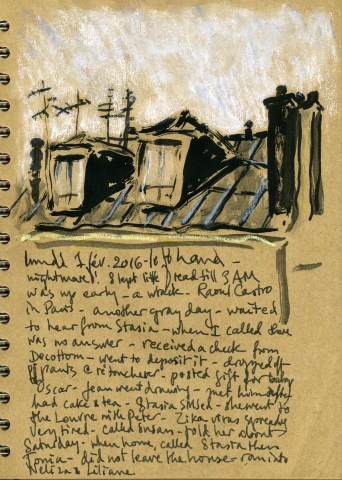 lundi 1 fév. 2016 -
nightmare! Slept little read till 3 AM
was up early - a wreck - Raoul Castro
in Paris - another gray day - waited
to hear from Stasia - when I called there
was no answer - received a check from
went to deposit it - dropped off
pants @ posted gift for baby
Oscar - Jean went drawing - met him after
had cake & tea - Stasia she went to
the Louvre with Peter - Zika virus spreads
Very tired - called Susan - told her about
Saturday - when home, called Stasia then
Sonia - did not leave the house - ran into
Neliza & Liliane